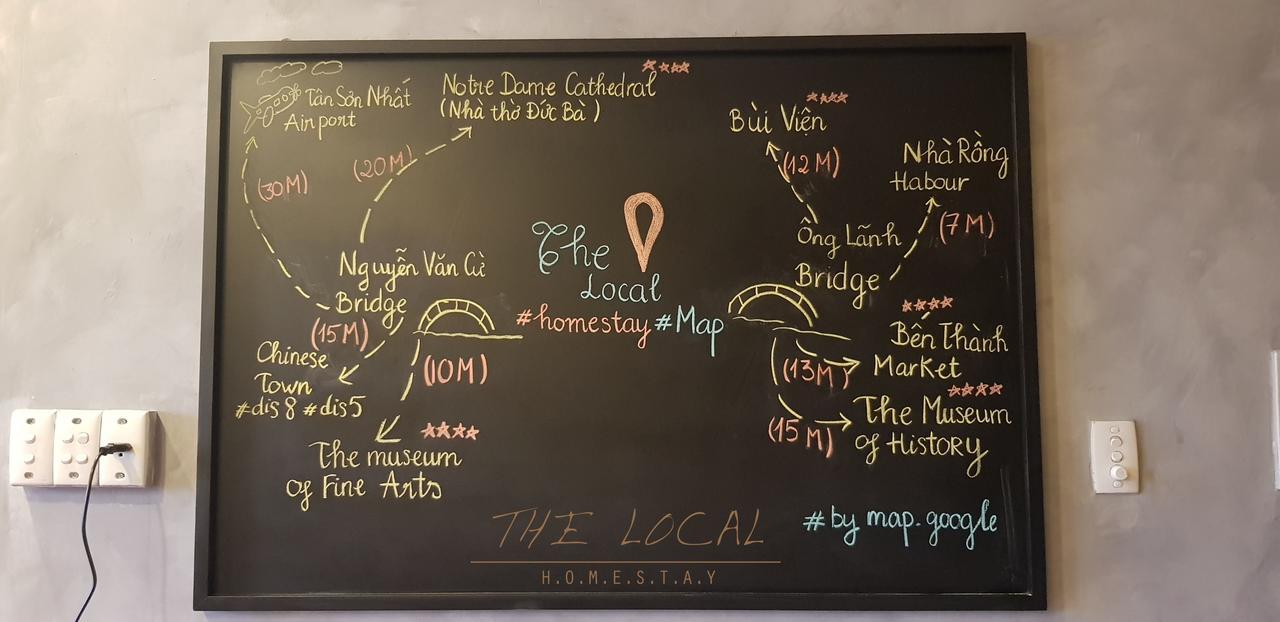 Tân Sơn Nhất
Airport
(30M)
Notre Dame Cathedral
(Nhà thờ Đức Bà)
(20M)
Nguyễn Văn Cừ
Bridge
(15M)
Chinese
Town
#dis8 #dis5
(10M)
The museum
of Fine Arts
The
Local
#homestay #Map
Bùi Viện
(12M)
Nhà Rồng
Habour
(7M)
Ông Lãnh
Bridge
Bến Thành
Market
(13M)
The Museum
of History
(15M)
#by map.google
THE LOCAL
H.O.M.E.S.T.A.Y